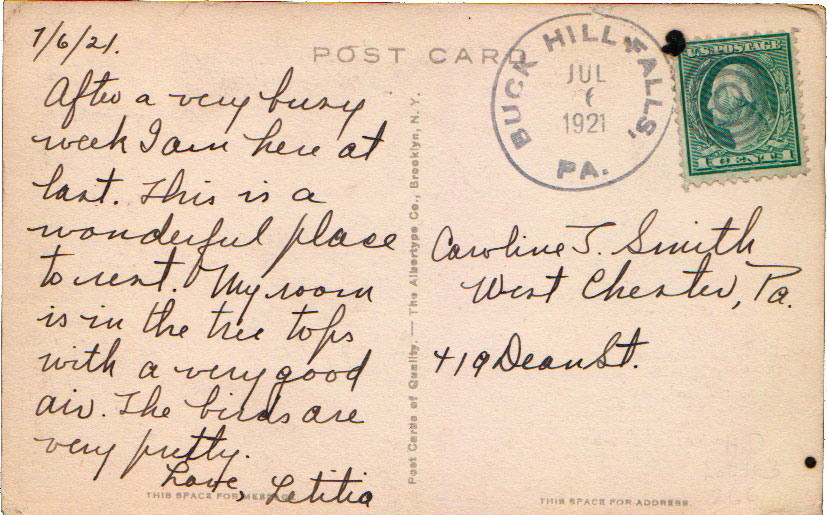 7/6/21.
POST CARD
After a very busy
week I am here at
last. This is a
wonderful place
to rest. My room
is in the tree tops
with a very good
air. The birds are
very pretty.
Love, Letitia
THIS SPACE FOR MESSAGE.
Post Cards of Quality. — The Albertype Co., Brooklyn, N. Y.
BUCK HILL FALLS,
JUL
6
1921
PA.
U.S. POSTAGE
1 CENT 1
Caroline T. Smith
West Chester, Pa.
419 Dean St.
THIS SPACE FOR ADDRESS.